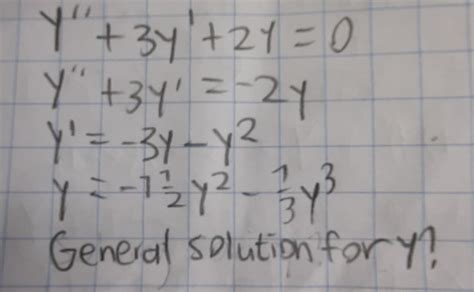 y'' + 3y' + 2y = 0
y'' + 3y' = -2y
y' = -3y - y²
y = -1½y² - ⅓y³
General solution for y?